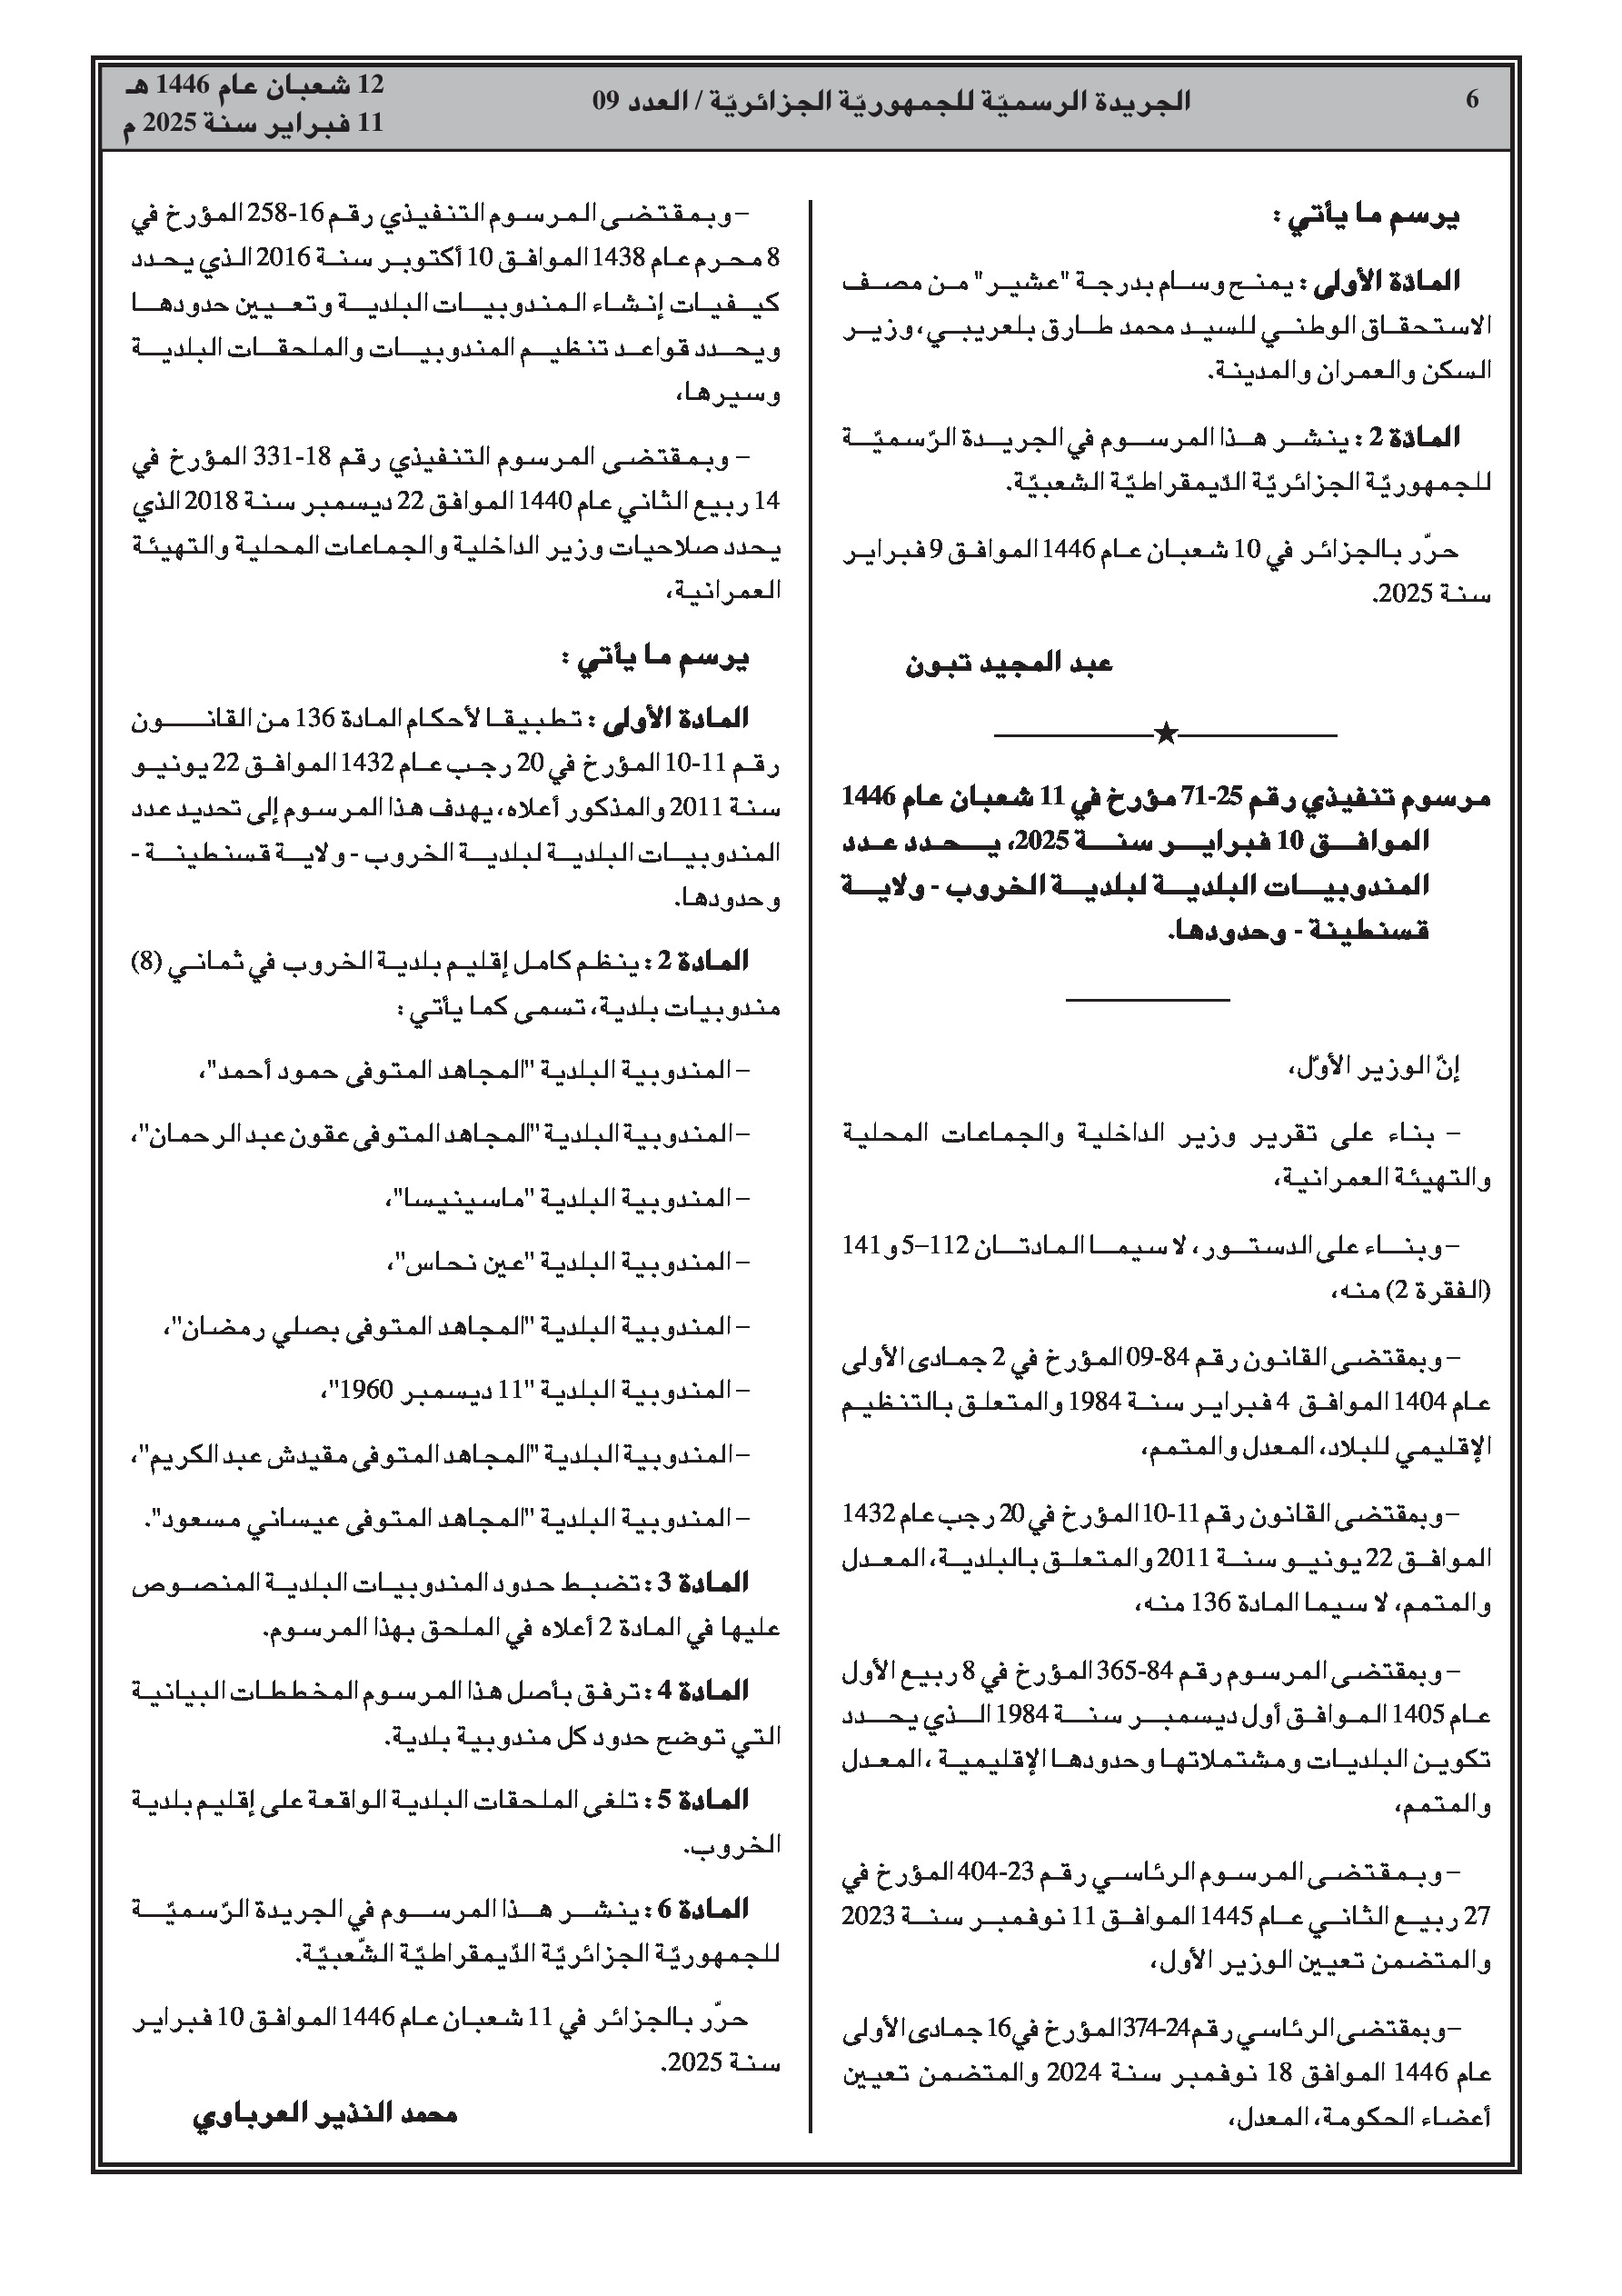 6
الجريدة الرسميّة للجمهوريّة الجزائريّة / العدد 09
12 شعبان عام 1446 هـ
11 فبراير سنة 2025 م
يرسم ما يأتي :
المادّة الأولى : يمنح وسام بدرجة "عشير" من مصف
الاستحقاق الوطني للسيد محمد طارق بلعريبي، وزير
السكن والعمران والمدينة.
المادّة 2 : ينشر هذا المرسوم في الجريدة الرّسميّة
للجمهوريّة الجزائريّة الدّيمقراطيّة الشعبيّة.
حرّر بالجزائر في 10 شعبان عام 1446 الموافق 9 فبراير
سنة 2025.
عبد المجيد تبون
مرسوم تنفيذي رقم 25-71 مؤرخ في 11 شعبان عام 1446
الموافق 10 فبراير سنة 2025، يحدد عدد
المندوبيات البلدية لبلدية الخروب - ولاية
قسنطينة - وحدودها.
إنّ الوزير الأوّل،
– بناء على تقرير وزير الداخلية والجماعات المحلية
والتهيئة العمرانية،
– وبناء على الدستور، لا سيما المادتان 112–5 و141
(الفقرة 2) منه،
– وبمقتضى القانون رقم 84-09 المؤرخ في 2 جمادى الأولى
عام 1404 الموافق 4 فبراير سنة 1984 والمتعلق بالتنظيم
الإقليمي للبلاد، المعدل والمتمم،
– وبمقتضى القانون رقم 11-10 المؤرخ في 20 رجب عام 1432
الموافق 22 يونيو سنة 2011 والمتعلق بالبلدية، المعدل
والمتمم، لا سيما المادة 136 منه،
– وبمقتضى المرسوم رقم 84-365 المؤرخ في 8 ربيع الأول
عام 1405 الموافق أول ديسمبر سنة 1984 الذي يحدد
تكوين البلديات ومشتملاتها وحدودها الإقليمية ، المعدل
والمتمم،
– وبمقتضى المرسوم الرئاسي رقم 23-404 المؤرخ في
27 ربيع الثاني عام 1445 الموافق 11 نوفمبر سنة 2023
والمتضمن تعيين الوزير الأول،
– وبمقتضى الرئاسي رقم 24-374 المؤرخ في 16 جمادى الأولى
عام 1446 الموافق 18 نوفمبر سنة 2024 والمتضمن تعيين
أعضاء الحكومة، المعدل،
– وبمقتضى المرسوم التنفيذي رقم 16-258 المؤرخ في
8 محرم عام 1438 الموافق 10 أكتوبر سنة 2016 الذي يحدد
كيفيات إنشاء المندوبيات البلدية وتعيين حدودها
ويحدد قواعد تنظيم المندوبيات والملحقات البلدية
وسيرها،
– وبمقتضى المرسوم التنفيذي رقم 18-331 المؤرخ في
14 ربيع الثاني عام 1440 الموافق 22 ديسمبر سنة 2018 الذي
يحدد صلاحيات وزير الداخلية والجماعات المحلية والتهيئة
العمرانية،
يرسم ما يأتي :
المادة الأولى : تطبيقا لأحكام المادة 136 من القانون
رقم 11-10 المؤرخ في 20 رجب عام 1432 الموافق 22 يونيو
سنة 2011 والمذكور أعلاه، يهدف هذا المرسوم إلى تحديد عدد
المندوبيات البلدية لبلدية الخروب - ولاية قسنطينة -
وحدودها.
المادة 2 : ينظم كامل إقليم بلدية الخروب في ثماني (8)
مندوبيات بلدية، تسمى كما يأتي :
– المندوبية البلدية "المجاهد المتوفى حمود أحمد"،
– المندوبية البلدية "المجاهد المتوفى عقون عبد الرحمان"،
– المندوبية البلدية "ماسينيسا"،
– المندوبية البلدية "عين نحاس"،
– المندوبية البلدية "المجاهد المتوفى بصلي رمضان"،
– المندوبية البلدية "11 ديسمبر 1960"،
– المندوبية البلدية "المجاهد المتوفى مقيدش عبد الكريم"،
– المندوبية البلدية "المجاهد المتوفى عيساني مسعود".
المادة 3 : تضبط حدود المندوبيات البلدية المنصوص
عليها في المادة 2 أعلاه في الملحق بهذا المرسوم.
المادة 4 : ترفق بأصل هذا المرسوم المخططات البيانية
التي توضح حدود كل مندوبية بلدية.
المادة 5 : تلغى الملحقات البلدية الواقعة على إقليم بلدية
الخروب.
المادة 6 : ينشر هذا المرسوم في الجريدة الرّسميّة
للجمهوريّة الجزائريّة الدّيمقراطيّة الشّعبيّة.
حرّر بالجزائر في 11 شعبان عام 1446 الموافق 10 فبراير
سنة 2025.
محمد النذير العرباوي